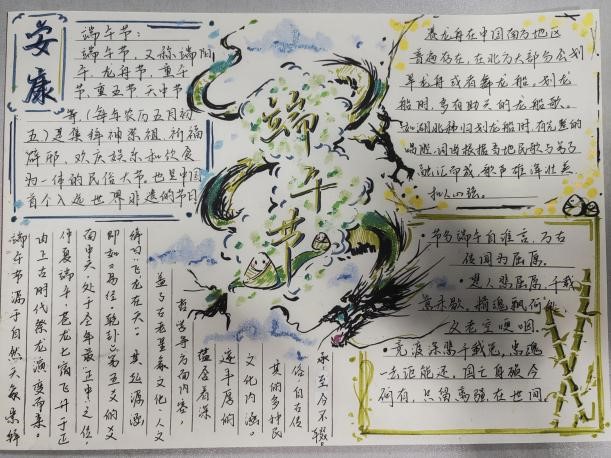 安康
端午节:
端午节,又称端阳
午、龙舟节、重午
节、重五节、天中节
等,(每年农历五月初
五)是集拜神祭祖、祈福
辟邪、欢庆娱乐和饮食
为一体的民俗大节也是中国
首个入选世界非遗的节日
端午节
赛龙舟在中国南方地区
普遍存在,在北方大部分会划
旱龙舟或者舞龙船,划龙
船时,多有助兴的龙船歌。
如湖北秭归划龙船时,有完整的
唱腔,词曲根据当地民歌与号子
融汇而成,歌声雄浑壮美
扣人心弦。
• 节分端午自谁言,万古
传闻为屈原。
• 楚人悲屈原,千载
意未歇,精魂飘何处
父老空哽咽。
• 竞渡深悲千载冤,忠魂
一去讵能还,国亡身殒今
何有,只留离骚在世间
端午节源于自然天象崇拜
由上古时代祭龙演变而来。
仲夏端午,苍龙七宿飞升于正
南中天,处于全年最"正中"之位,
即如《易经·乾卦》第五爻的爻
辞曰:"飞龙在天"。其起源涵
盖了古老星象文化、人文
哲学等方面内容,
蕴含着深
邃丰厚的
文化内涵。
其的多种民
俗,自古传
承,至今不辍。